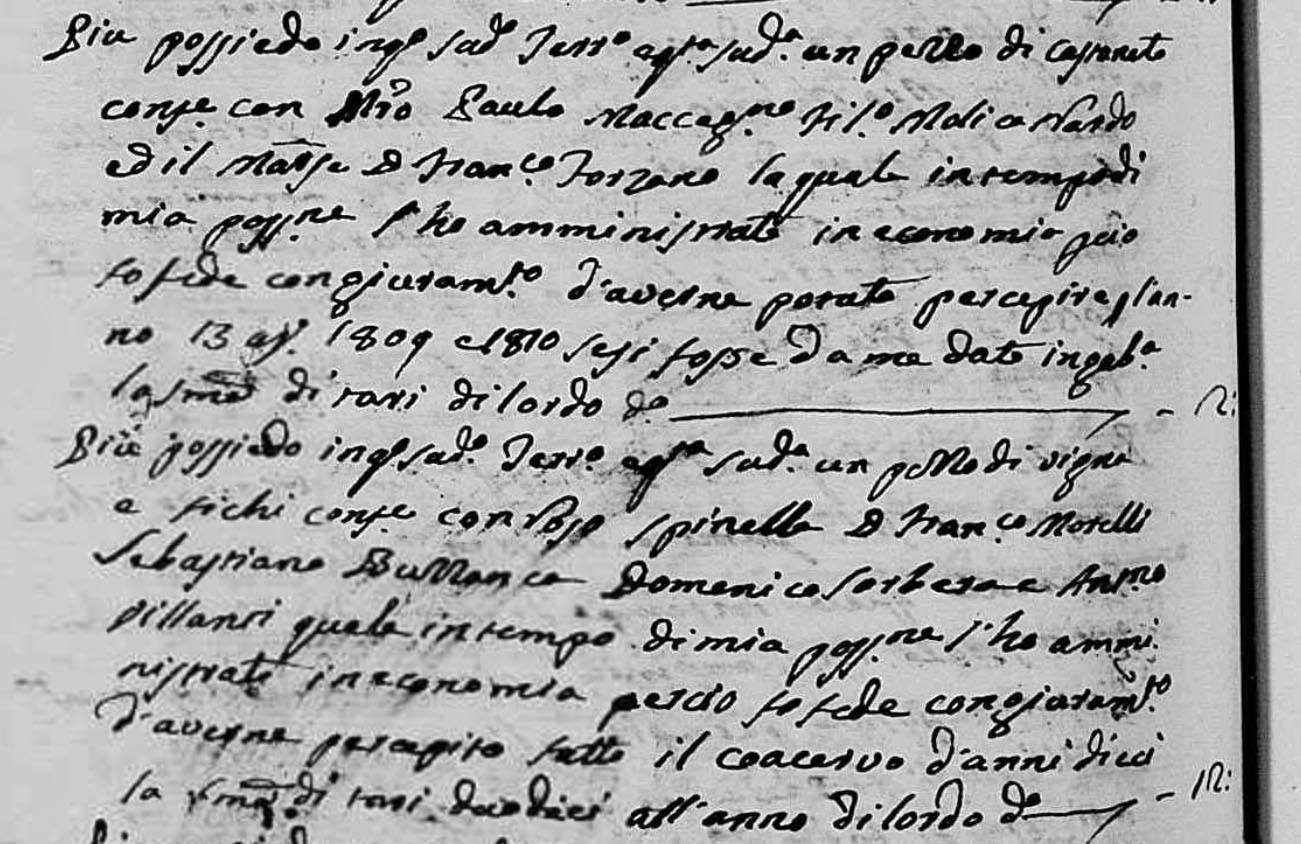 Più possiedo in q.o sud.o Terr.o e q.ta sud.a un pezzo di castaneto
conf.e con M.ro Paulo Maccag.no Fil.o Moli a Nardo
ed il Mass.e D Fran.co Forzano la quale in tempo di
mia poss.ne l'ho amministrato in economia p ciò
fo fede con giuram.to d'averne potuto percepire p l'an-
no 13 ag. 1809 e 1810 se si fosse da me dato in gab.a
la sma di tari di lordo do - 12:
Più possiedo in q.o sud.o Terr.o e q.ta sud.a un pezzo di vigna
e fichi conf.e con Spinella D Fran.co Morelli
Sebastiano Bullanca Domenico Sorbera e Ant.no
Pillanti quale in tempo di mia poss.ne l'ho ammi
nistrato in economia perciò fo fede con giuram.to
d'averne percepito sutto il coacervo d'anni dieci
la sma di tari duodeci all'anno di lordo do - 12: